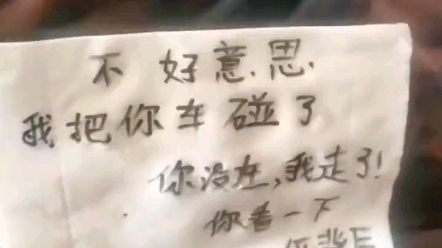 不好意思
我把你车碰了
你没在,我走了!
你看一下